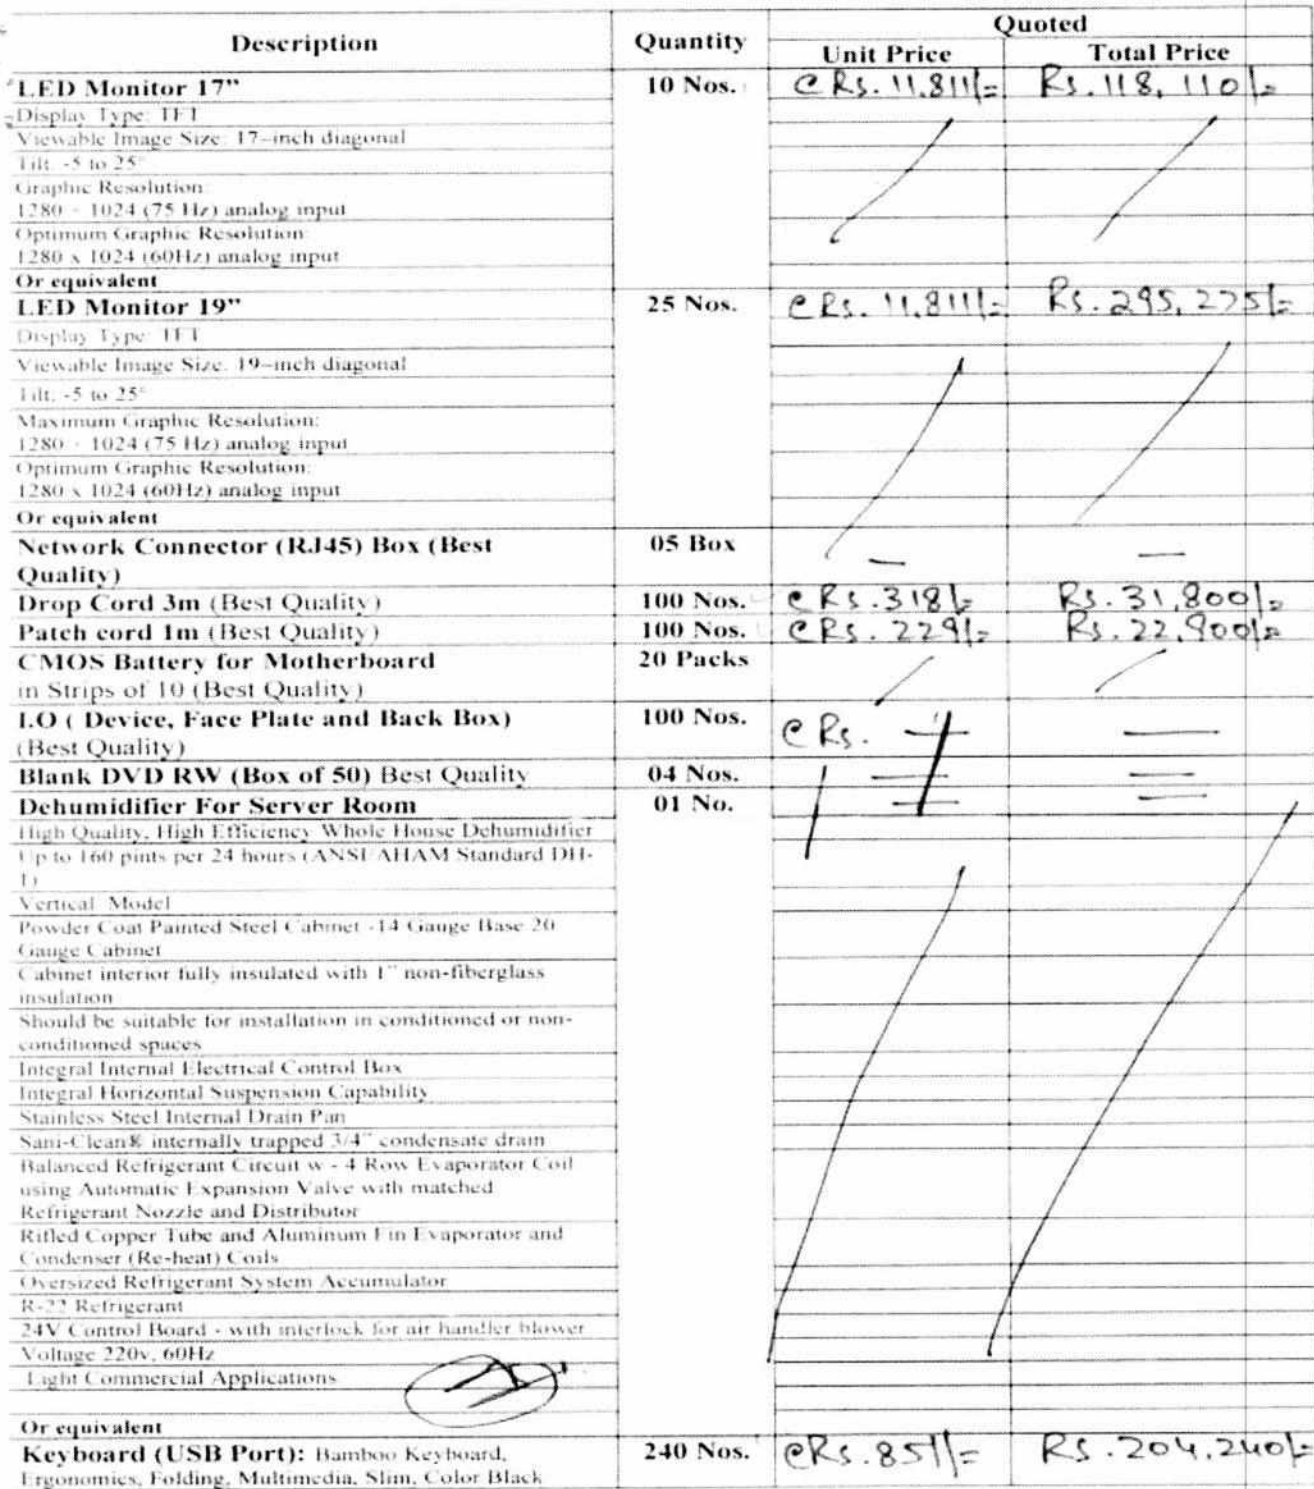 Description Quantity Quoted
Unit Price Total Price
LED Monitor 17" 10 Nos. @ Rs. 11,811/= Rs. 118,110/=
Display Type: TFT
Viewable Image Size: 17–inch diagonal
Tilt: -5 to 25°
Graphic Resolution:
1280 × 1024 (75 Hz) analog input
Optimum Graphic Resolution:
1280 x 1024 (60Hz) analog input
Or equivalent
LED Monitor 19" 25 Nos. @ Rs. 11,811/= Rs. 295,275/=
Display Type: TFT
Viewable Image Size: 19–inch diagonal
Tilt: -5 to 25°
Maximum Graphic Resolution:
1280 × 1024 (75 Hz) analog input
Optimum Graphic Resolution:
1280 x 1024 (60Hz) analog input
Or equivalent
Network Connector (RJ45) Box (Best 05 Box — —
Quality)
Drop Cord 3m (Best Quality) 100 Nos. @ Rs. 318/= Rs. 31,800/=
Patch cord 1m (Best Quality) 100 Nos. @ Rs. 229/= Rs. 22,900/=
CMOS Battery for Motherboard 20 Packs
in Strips of 10 (Best Quality)
I.O ( Device, Face Plate and Back Box) 100 Nos. @ Rs. — —
(Best Quality)
Blank DVD RW (Box of 50) Best Quality 04 Nos.
Dehumidifier For Server Room 01 No.
High Quality, High Efficiency Whole House Dehumidifier
Up to 160 pints per 24 hours (ANSI/AHAM Standard DH-
1)
Vertical Model
Powder Coat Painted Steel Cabinet -14 Gauge Base 20
Gauge Cabinet
Cabinet interior fully insulated with 1" non-fiberglass
insulation
Should be suitable for installation in conditioned or non-
conditioned spaces
Integral Internal Electrical Control Box
Integral Horizontal Suspension Capability
Stainless Steel Internal Drain Pan
Sani-Clean® internally trapped 3/4" condensate drain
Balanced Refrigerant Circuit w - 4 Row Evaporator Coil
using Automatic Expansion Valve with matched
Refrigerant Nozzle and Distributor
Rifled Copper Tube and Aluminum Fin Evaporator and
Condenser (Re-heat) Coils
Oversized Refrigerant System Accumulator
R-22 Refrigerant
24V Control Board - with interlock for air handler blower
Voltage 220v, 60Hz
Light Commercial Applications
Or equivalent
Keyboard (USB Port): Bamboo Keyboard, 240 Nos. @ Rs. 851/= Rs. 204,240/=
Ergonomics, Folding, Multimedia, Slim, Color Black